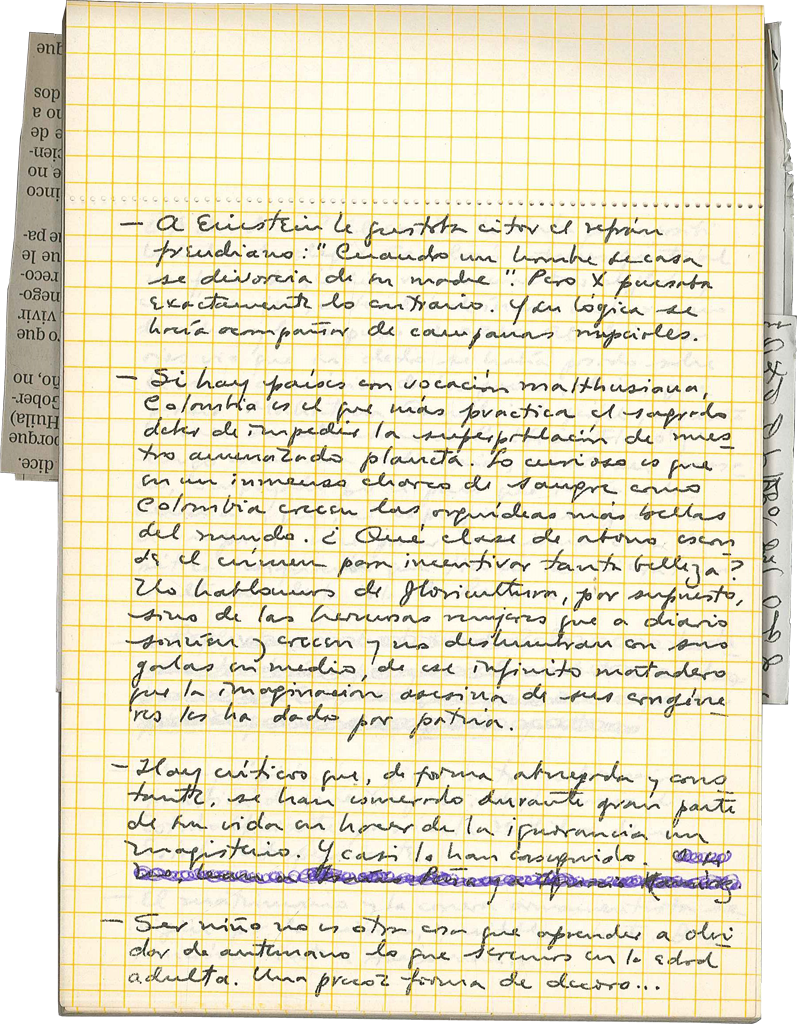 — A Einstein le gustaba citar el refrán
freudiano: "Cuando un hombre se casa
se divorcia de su madre". Pero X pensaba
exactamente lo contrario. Y su lógica se
hacía acompañar de campanas nupciales.
— Si hay países con vocación malthusiana,
Colombia es el que más practica el sagrado
deber de impedir la superpoblación de nues-
tro amenazado planeta. Lo curioso es que
en un inmenso charco de sangre como
Colombia crecen las orquídeas más bellas
del mundo. ¿Qué clase de abono escon-
de el crimen para incentivar tanta belleza?
No hablamos de floricultura, por supuesto,
sino de las hermosas mujeres que a diario
sonríen y crecen y nos deslumbran con sus
galas en medio, de ese infinito matadero
que la imaginación asesina de sus congéne-
res les ha dado por patria.
— Hay críticos que, de forma abnegada y cons-
tante, se han esmerado durante gran parte
de su vida en hacer de la ignorancia un
magisterio. Y casi lo han conseguido.
— Ser niño no es otra cosa que aprender a olvi-
dar de antemano lo que seremos en la edad
adulta. Una precoz forma de decoro...
que
dos
no a
e de
cien-
e no
inco
ue pa-
ue le
reco-
nego-
vivir
ro que
ño, no
Gober-
(Huila)
porque
dice.